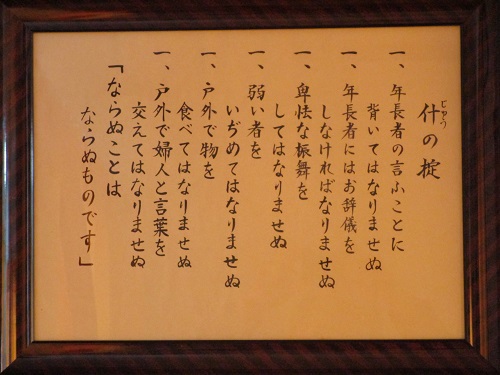 じゅう
什の掟
一、年長者の言ふことに
背いてはなりませぬ
一、年長者にはお辞儀を
しなければなりませぬ
一、卑怯な振舞を
してはなりませぬ
一、弱い者を
いぢめてはなりませぬ
一、戸外で物を
食べてはなりませぬ
一、戸外で婦人と言葉を
交えてはなりませぬ
「ならぬことは
ならぬものです」